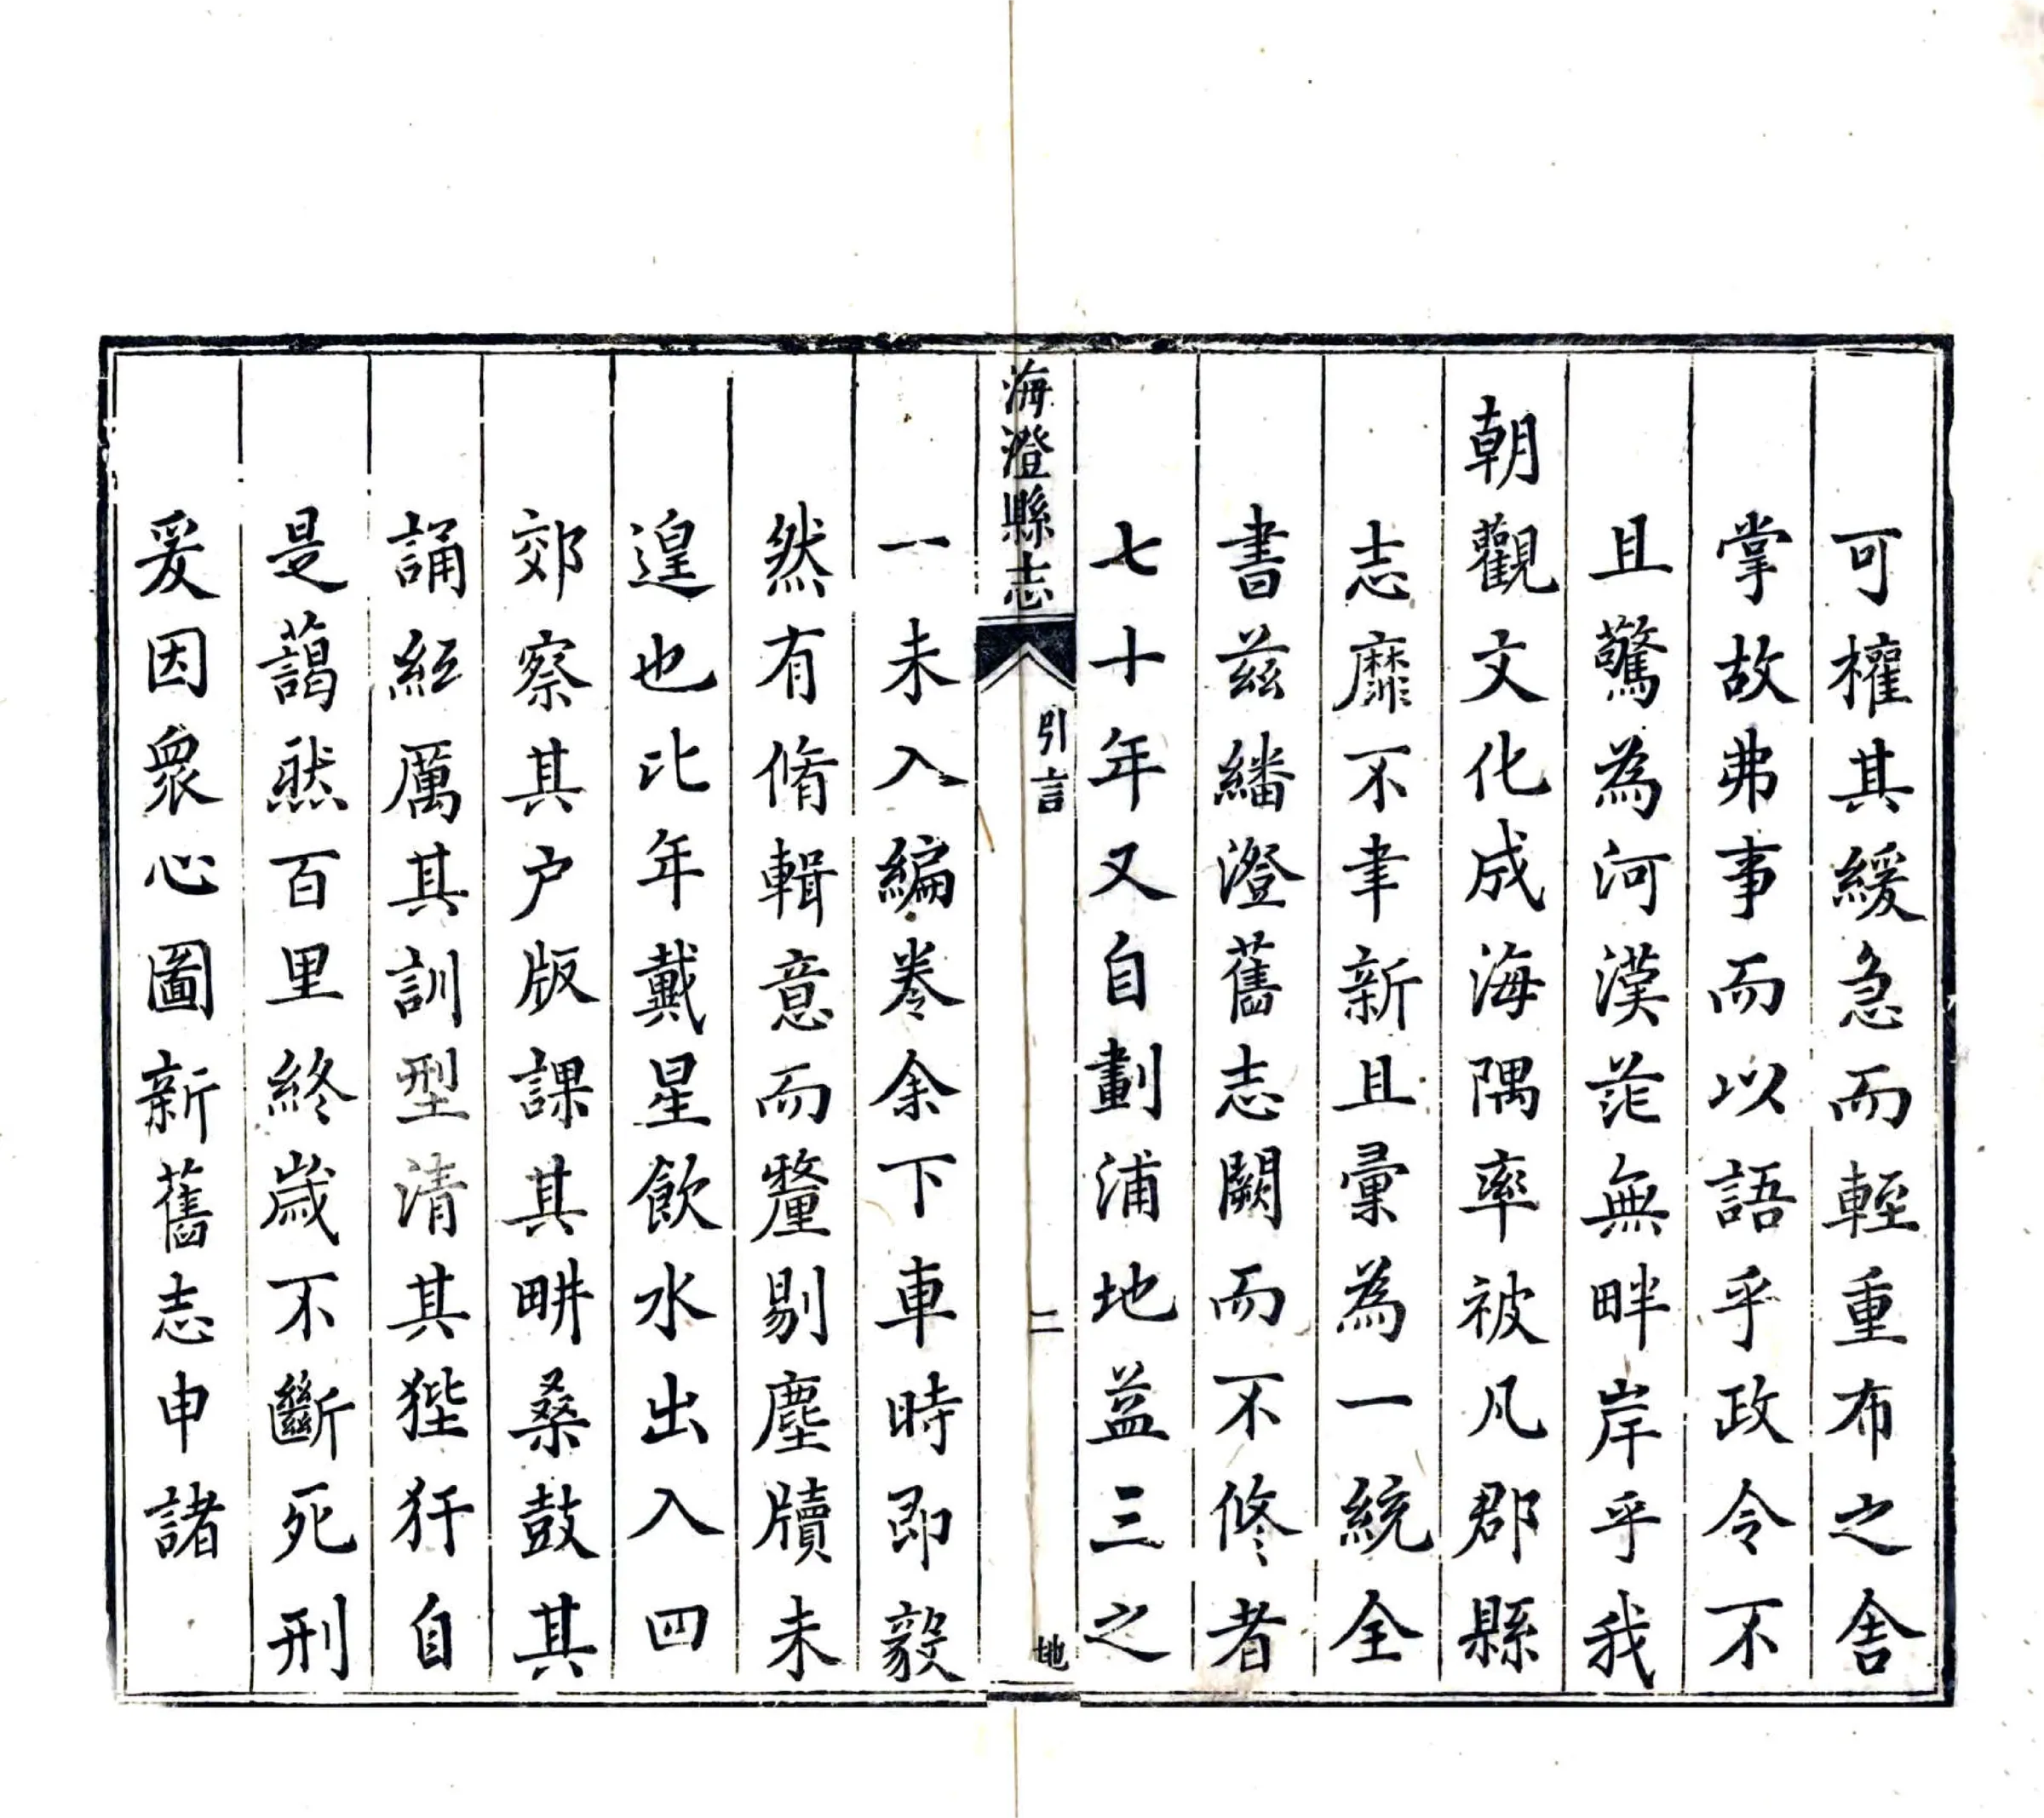 可權其緩急而輕重布之舍
掌故弗事而以語乎政令不
且驚為河漢茫無畔岸乎我
朝觀文化成海隅率被凡郡縣
志靡不聿新且彙為一統全
書兹繙澄舊志闕而不修者
七十年又自劃浦地益三之
海澄縣志
引言
二
地
一未入編卷余下車時即毅
然有脩輯意而釐剔塵牘未
遑也比年戴星飲水出入四
郊察其户版課其畊桑鼓其
誦紝厲其訓型清其狴犴自
是藹然百里終歲不斷死刑
爰因衆心圖新舊志申諸